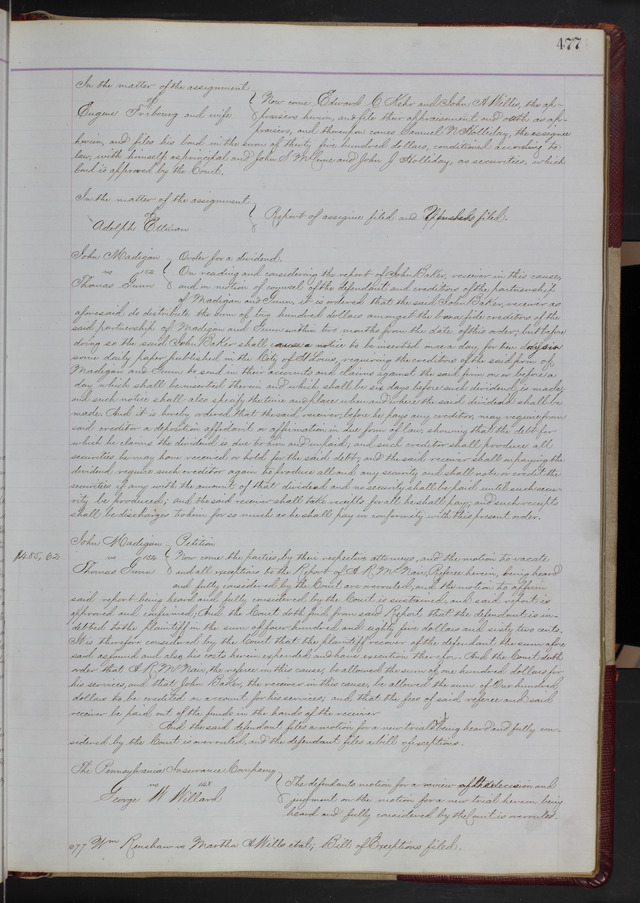 477
In the matter of the assignment
of
Eugene Frobourg and wife
Now come Edward C Kehr and John A Willis, the ap-
praisers herein, and file their appraisement and oath as ap-
praisers, and thereupon comes Samuel N Holliday, the assignee
herein, and files his bond in the sum of thirty five hundred dollars, conditioned according to
law, with himself as principal and John S McCune and John J Holliday, as securities, which
bond is approved by the Court.
In the matter of the assignment
of
Adolph Ellman
Report of assignee filed and filed.
John Madigan
vs 152
Thomas Gunn
Order for a dividend.
On reading and considering the report of John Baker, receiver in this cause,
and on motion of counsel of the defendant and creditors of the partnership
of Madigan and Gunn, it is ordered that the said John Baker, receiver as
aforesaid do distribute the sum of two hundred dollars amongst the bona fide creditors of the
said partnership of Madigan and Gunn within two months from the date of this order; but before
doing so the said John Baker shall cause a notice to be inserted once a day, for ten days in
some daily paper published in the City of St Louis, requiring the creditors of the said firm of
Madigan and Gunn to send in their accounts and claims against the said firm, on or before a
day which shall be inserted therein and which shall be six days before such dividend is made,
and such notice shall also specify the time and place when and where the said dividend shall be
made. And it is hereby ordered that the said receiver, before he pays any creditor, may require from
said creditor a deposition affidavit or affirmation in due form of law, showing that the debt for
which he claims the dividend is due to him and unpaid, and such creditor shall produce all
securities he may have received or hold for the said debt; and the said receiver shall on paying the
dividend require such creditor again to produce all and any security and shall note or credit the
securities if any with the amount of that dividend and no security shall be paid until such secu-
rity be produced; and the said receiver shall take receipts for all he shall pay; and such receipts
shall be discharges to him for so much as he shall pay in conformity with this present order.
$485.62
John Madigan
vs 152
Thomas Gunn
Petition
Now come the parties, by their respective attorneys, and the motion to vacate
and all exceptions to the Report of A. R. McNair, Referee herein, being heard
and fully considered by the Court are overruled, and the motion to affirm
said report being heard and fully considered by the Court is sustained, and said report is
approved and confirmed; And the Court doth find from said Report that the defendant is in-
debted to the plaintiff in the sum of four hundred and eighty five dollars and sixty two cents.
It is therefore considered by the Court that the plaintiff recover of the defendant the sum afore
said as found and also his costs herein expended, and have execution therefor. And the Court doth
order that A R McNair, the referee in this cause, be allowed the sum of one hundred dollars for
his services, and that John Baker, the receiver in this cause, be allowed the sum of One hundred
dollars to be credited on account for his services, and that the fees of said referee and said
receiver be paid out of the funds in the hands of the receiver.
And the said defendant files a motion for a new trial being heard and fully con-
sidered by the Court is overruled, and the defendant files a bill of exceptions.
The Pennsylvania Insurance Company
vs
George W Willard
The defendants motion for a review of the decision and
judgment on the motion for a new trial herein being
heard and fully considered by the Court is overruled.
677 Wm Renshaw vs Martha A Mills et al; Bill of Exceptions filed.